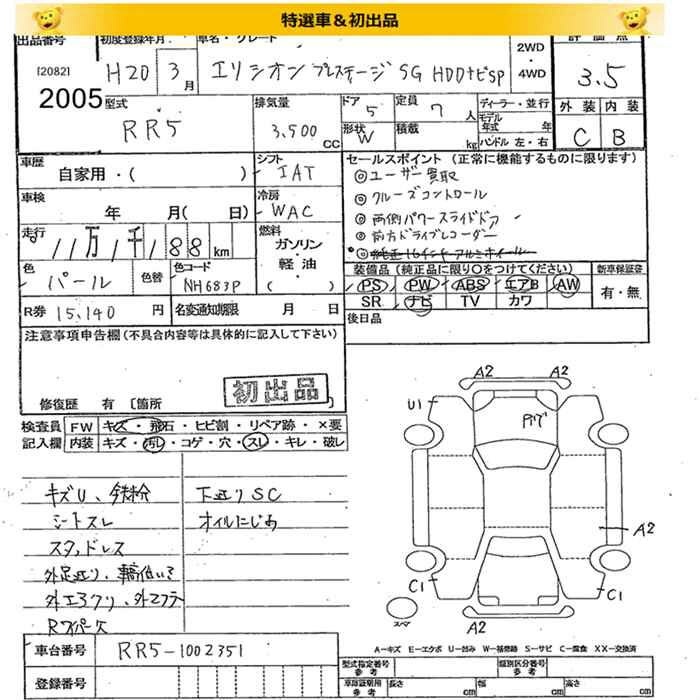 特選車＆初出品
出品番号 初度登録年月 車名・グレード 2WD・4WD 評価点
[2082] H20 3月 エリシオン プレステージ SG HDDナビSP 3.5
2005 型式 RR5 排気量 3,500 CC ドア 5 定員 7人 形状 W 積載 kg ディーラー・並行 モデル年式 年 ハンドル 左・右 外装 内装 C B
車歴 自家用・( ) シフト IAT
セールスポイント (正常に機能するものに限ります)
◎ユーザー買取
◎クルーズコントロール
◎両側パワースライドドア
◎前方ドライブレコーダー
◎純正16インチアルミホイール
車検 年 月( 日) 冷房 WAC
走行 11万1千188km 燃料 ガソリン・軽油・( )
色 パール 色替 色コード NH683P
装備品 (純正品に限り○をつけてください) 新車保証書
PS PW ABS エアB AW 有・無
SR ナビ TV カワ
R券 15,140 円 名変通知期限 月 日
後日品
注意事項申告欄 (不具合内容等は具体的に記入して下さい)
初出品
修復歴 有 〔箇所
検査員記入欄 FW キズ・飛石・ヒビ割・リペア跡・×要
内装 キズ・汚れ・コゲ・穴・スレ・キレ・破レ
キズU、鉄粉
シートスレ
スタッドレス
外エアクリ、外マフラー
下廻りSC
オイルにじみ
A2 A2
U1
A2
C1 C1
A2
スペア
A=キズ E=エクボ U=凹み W=補修跡 S=サビ C=腐食 XX=交換済
車台番号 RR5-1002351
登録番号
型式指定番号 参考 類別区分番号 参考
車庫証明用 参考 長さ cm 幅 cm 高さ cm